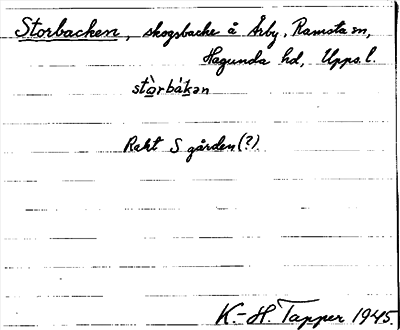 Storbacken, skogsbacke å Årby, Ramsta sn,
Hagunda hd, Upps. l.
stòrbákən
Rakt S gården (?).
K.-H. Tapper 1945.